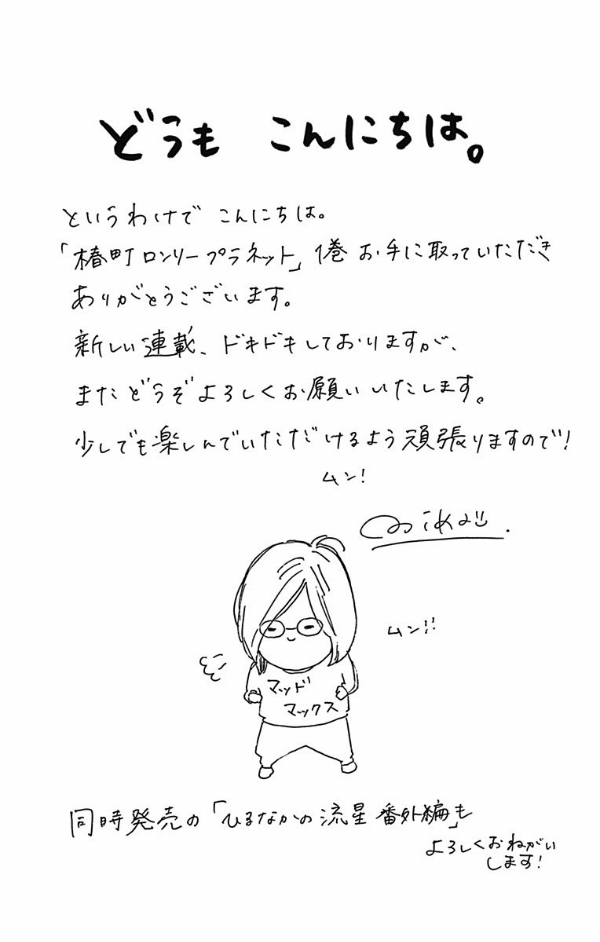 どうも こんにちは。
というわけで こんにちは。
「椿町ロンリープラネット」1巻 お手に取っていただき
ありがとうございます。
新しい連載、ドキドキしておりますが、
またどうぞよろしくお願いいたします。
少しでも楽しんでいただけるよう頑張りますので!
ムン!
ムン!!
マッド
マックス
同時発売の「ひるなかの流星 番外編」も
よろしくおねがい
します!